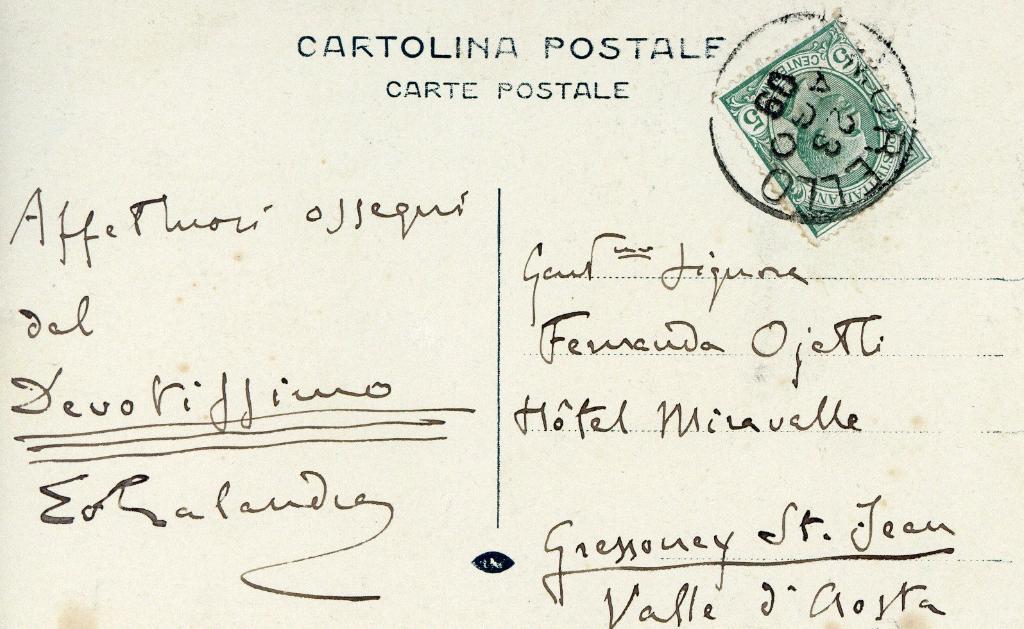 CARTOLINA POSTALE
CARTE POSTALE
5 CENT
5
POSTE ITALIANE
23 AGO 09
Affettuosi ossequi
dal
Devotissimo
Calandra
Gent.ma Signora
Fernanda Ojetti
Hôtel Miravalle
Gressoney St. Jean
Valle d'Aosta